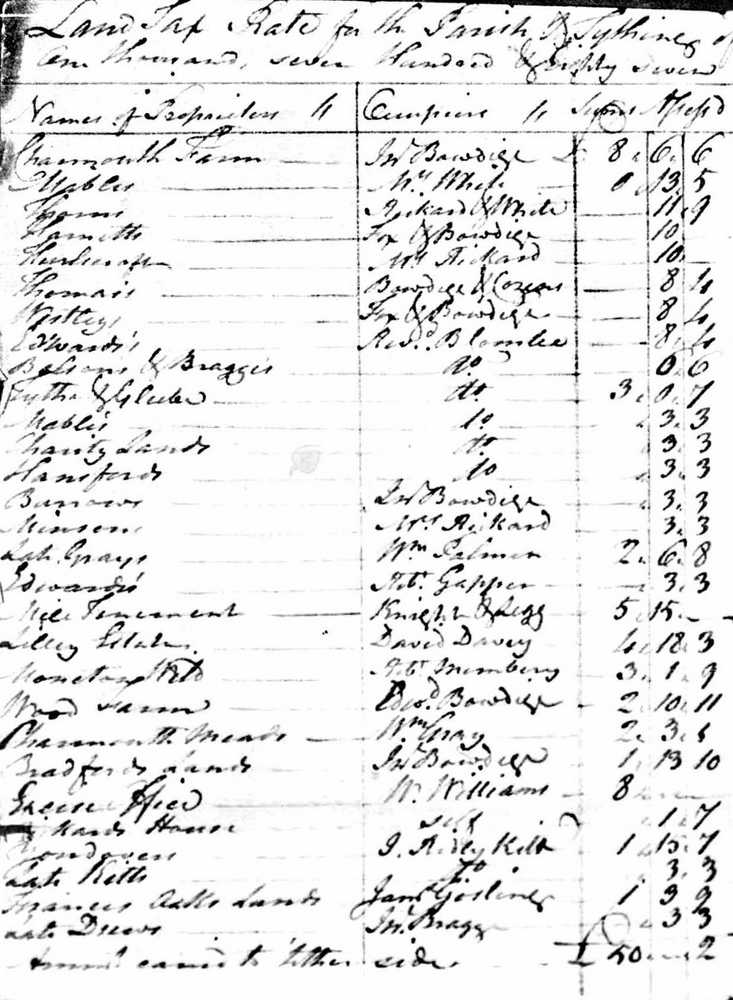 Land Tax Rate for the Parish & Tything of
One thousand, seven Hundred & Eighty seven
Names of Proprietors Occupiers Sums Assess'd
Charmouth Farm Jno Bowdige £ 8 " 6 " 6
Mables Mrs White 0 " 13 " 5
Thorns Rickard & White 11 " 9
Hametts Fox & Bowdige 10
Mrs Rickard 10
Thomas's Bowdige & Cozens 8 4
Westleys Fox & Bowdige 8 4
Edwards's Revd. Blomler 8 4
Bolsons & Bragges do 0 " 6
Tythe & Glebe do 3 " 0 " 7
Mables do 3 " 3
Charity Lands do 3 " 3
Hansfords do 3 " 3
Burrows Jno Bowdige 3 " 3
Minsons Mrs Rickard 3 " 3
Late Grays Wm Palmer 2 " 6 " 8
Edwards's Robt. Gapper 3 " 3
Mile Tenement Knight & Legg 5 " 15 "
Lilley Estate David Davey 4 " 18 " 3
Monckton Wild Robt. 3 " 1 " 9
Wood Farm Edwd. Bowdige 2 " 10 " 11
Charmouth Meads Wm Gray 2 " 3 "
Bradfords Lands Jno Bowdige 1 " 13 10
Excise Office Wm Williams 8 " "
Rickards House self " 1 " 7
J. Ridley Kitt 1 " 15 " 7
Late Kitts do 3 " 3
Francis Oakes Lands James Gosling 1 9 9
Late Drews Jno Bragg " 3 3
Amount carried to t'other side £ 50 " " 2